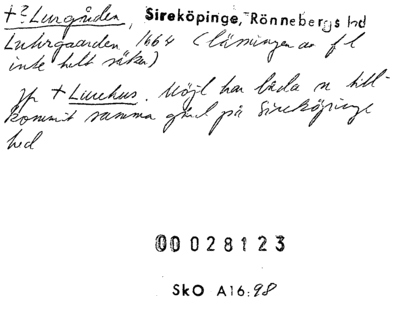 +? Lurgården, Sireköpinge, Rönnebergs hd
Luhrgaarden 1664 (läsningen av f l
inte helt säker)
Jfr + Lurehus. Möjl har båda n till-
kommit samma gård på Sireköpinge
hed
00028123
SkO A16:98